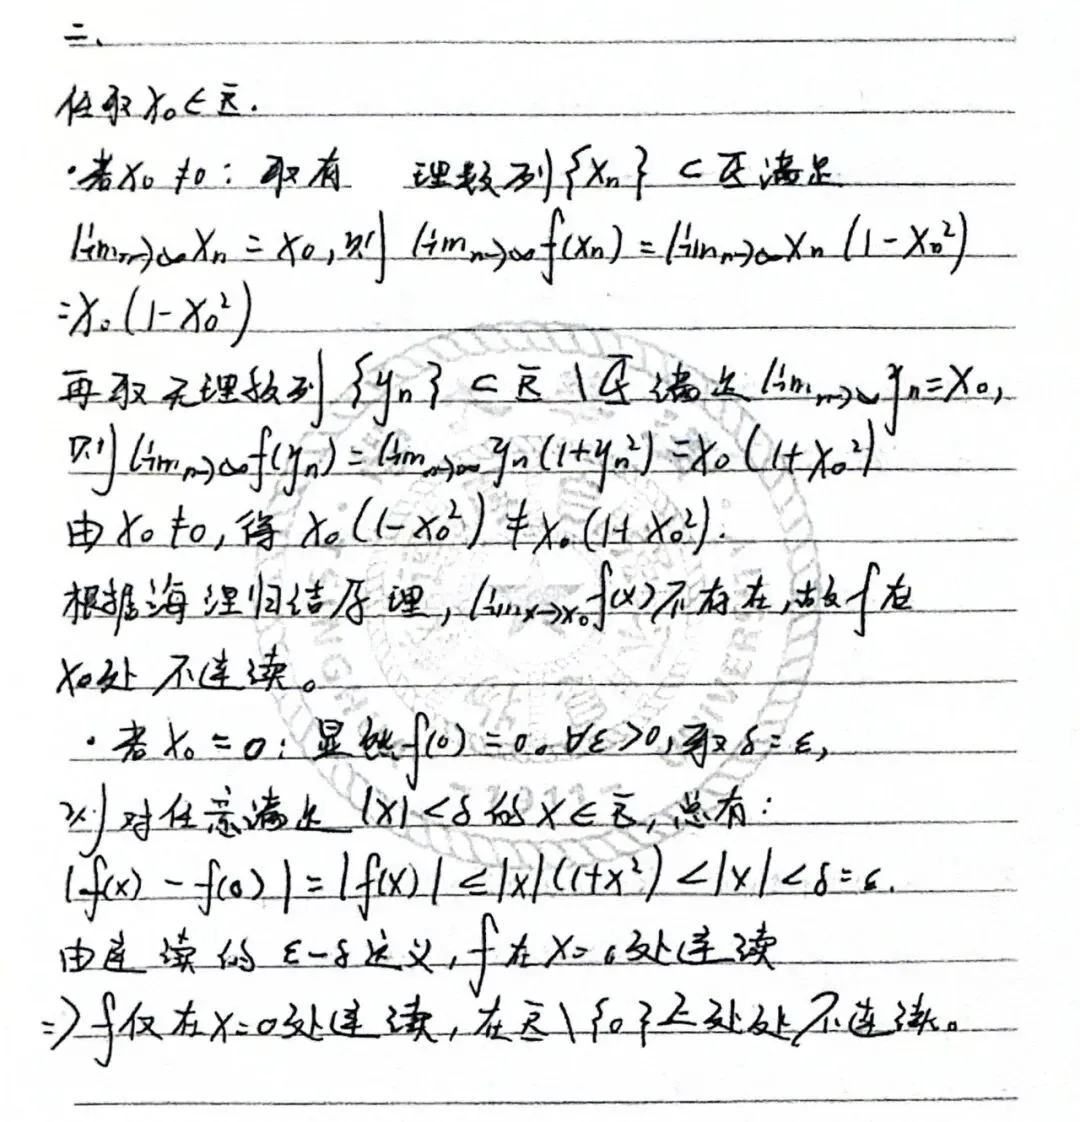 二、
任取 x₀∈ℝ.
·若 x₀≠0: 取有 理数列{xₙ}⊂ℚ满足
limₙ→∞ xₙ = x₀, 则 limₙ→∞ f(xₙ) = limₙ→∞ xₙ (1-xₙ²)
=x₀(1-x₀²)
再取无理数列{yₙ}⊂ℝ\ℚ 满足 limₙ→∞ yₙ=x₀,
则 limₙ→∞ f(yₙ) = limₙ→∞ yₙ(1+yₙ²) = x₀(1+x₀²)
由 x₀≠0, 得 x₀(1-x₀²) ≠ x₀(1+x₀²).
根据海涅归结原理, limₓ→ₓ₀ f(x)不存在, 故 f 在
x₀处 不连续。
·若 x₀=0: 显然 f(0)=0。∀ε>0, 取 δ=ε,
则对任意满足 |x|<δ 的 x∈ℝ, 总有:
|f(x)-f(0)|=|f(x)|≤|x|(1+x²)<|x|<δ=ε.
由连续的 ε-δ定义, f 在 x=0处连续
=> f 仅在 x=0处连续, 在ℝ\{0}上处处不连续。